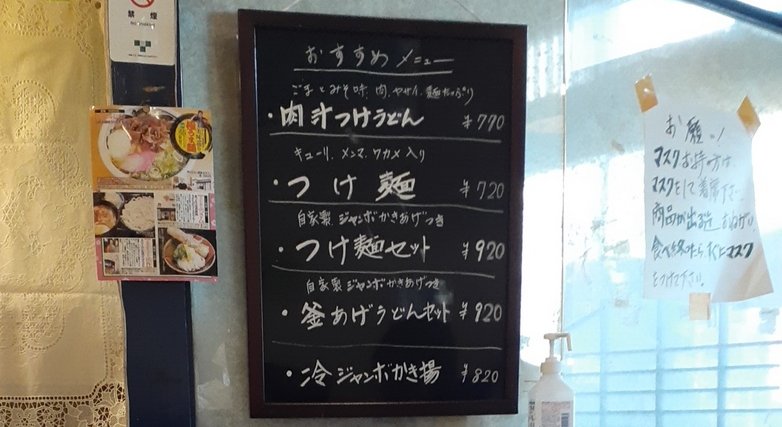 禁煙
おすすめメニュー
ごまとみそ味、肉、ヤサイ、麺たっぷり
・肉汁つけうどん ¥770
キューリ、メンマ、ワカメ入り
・つけ麺 ¥720
自家製、ジャンボかきあげつき
・つけ麺セット ¥920
自家製ジャンボかきあげつき
・釜あげうどんセット ¥920
・冷ジャンボかき揚 ¥820
お願い!
マスクお持ちの方は
マスクをして
商品が出る迄
食べ終わったらすぐにマスク
をつけて下さい。